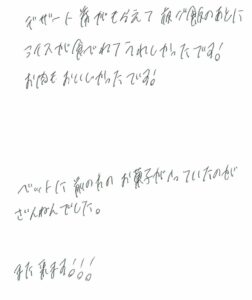 デザート券がもらえて夜ご飯のあとに
アイスが食べれてうれしかったです!
お肉もおいしかったです!
ベットに前の人のお菓子が入っていたのが
ざんねんでした。
また来ます!!!